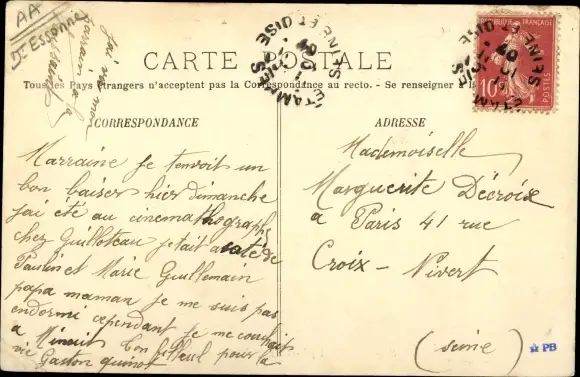 AA
Dt Essonne
CARTE POSTALE
Tous les Pays Étrangers n'acceptent pas la Correspondance au recto. - Se renseigner à la
CORRESPONDANCE
ADRESSE
RÉPUBLIQUE FRANÇAISE
10
POSTES
ÉTAMPES
SEINE ET OISE
J'ai vu mon
parrain
Marraine je tenvoit un
bon baiser hier dimanche
jai été au cinemathographe
chez Guilloteau jetait a coté de
Paulin et Marie Guillemain
papa maman je me suis pas
endormi cependant je me couchait
a Minuit ton filleul pour la
vie Gaston quinot
Mademoiselle
Marguerite Décroix
a Paris 41 rue
Croix-Nivert
(seine)
PB